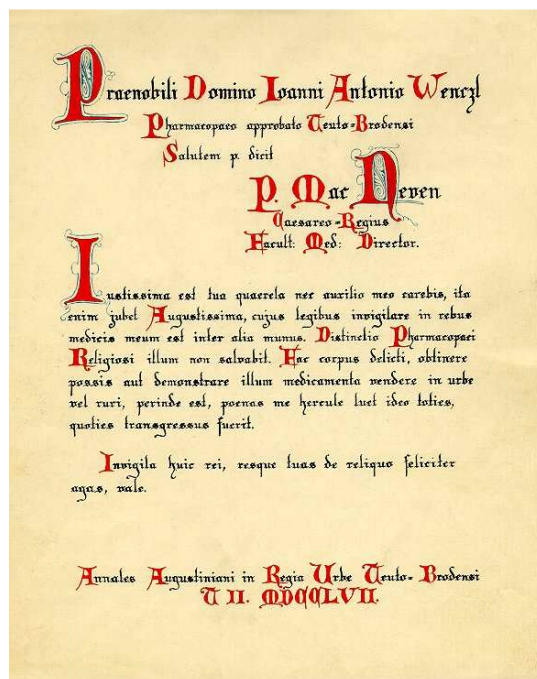 Praenobili Domino Ioanni Antonio Wenczl
Pharmacopaeo approbato Teuto=Brodensi
Salutem p. dicit
P. Mac Neven
Caesareo=Regius
Facult: Med: Director.
Iustissima est tua quaerela nec auxilio meo carebis, ita
enim jubet Augustissima, cujus legibus invigilare in rebus
medicis meum est inter alia munus. Distinctio Pharmacopaei
Religiosi illum non salvabit. Fac corpus delicti, obtinere
possis aut demonstrare illum medicamenta vendere in urbe
vel ruri, perinde est, poenas me hercule luet ideo toties,
quoties transgressus fuerit.
Invigila huic rei, resque tuas de reliquo feliciter
agas, vale.
Annales Augustiniani in Regia Urbe Teuto= Brodensi
T II. MDCCLVII.